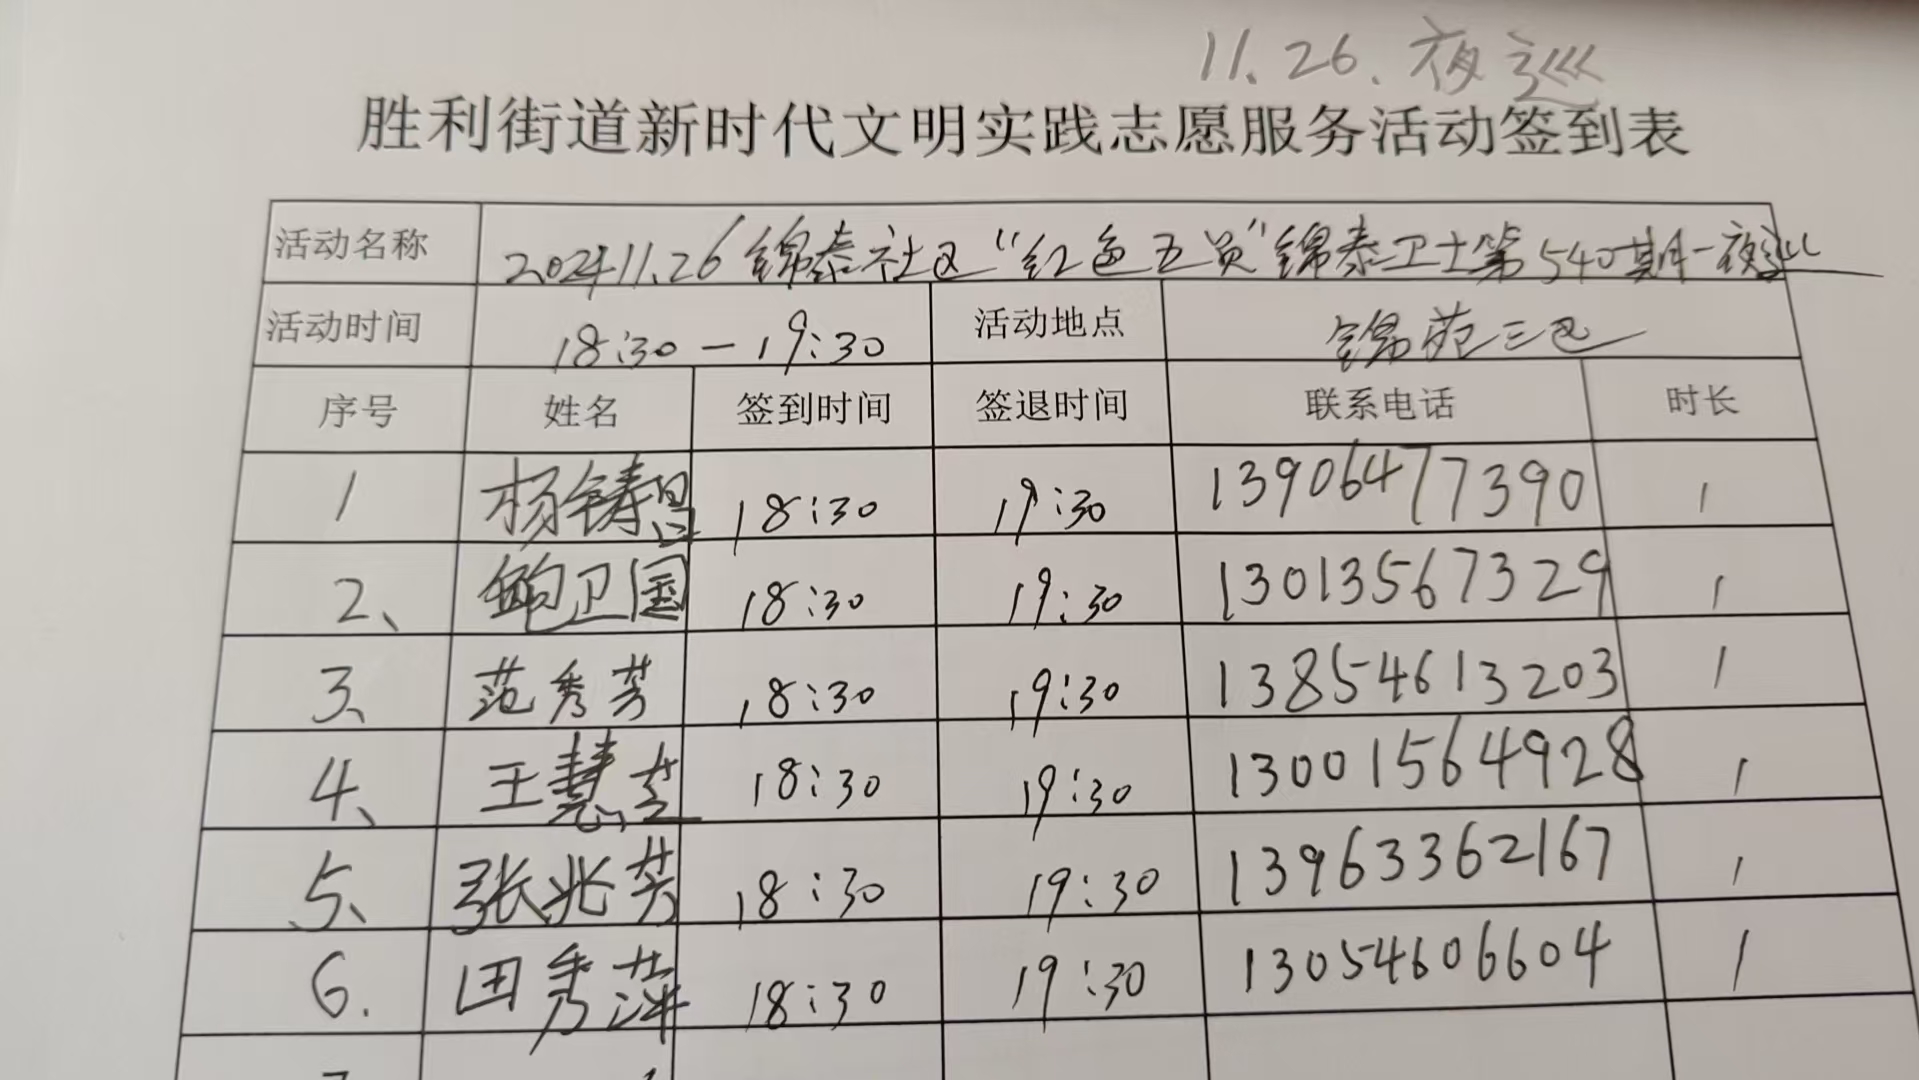 11.26.夜巡
胜利街道新时代文明实践志愿服务活动签到表
活动名称 2024 11.26 锦泰社区“红色五员”锦泰卫士第540期-夜巡
活动时间 18:30-19:30 活动地点 锦苑三区
序号 姓名 签到时间 签退时间 联系电话 时长
1 杨铸昌 18:30 19:30 13906477390 1
2、 鲍卫国 18:30 19:30 13013567329 1
3、 范秀芳 18:30 19:30 13854613203 1
4、 王慧芝 18:30 19:30 13001564928 1
5、 张兆芳 18:30 19:30 13963362167 1
6. 田秀萍 18:30 19:30 13054606604 1